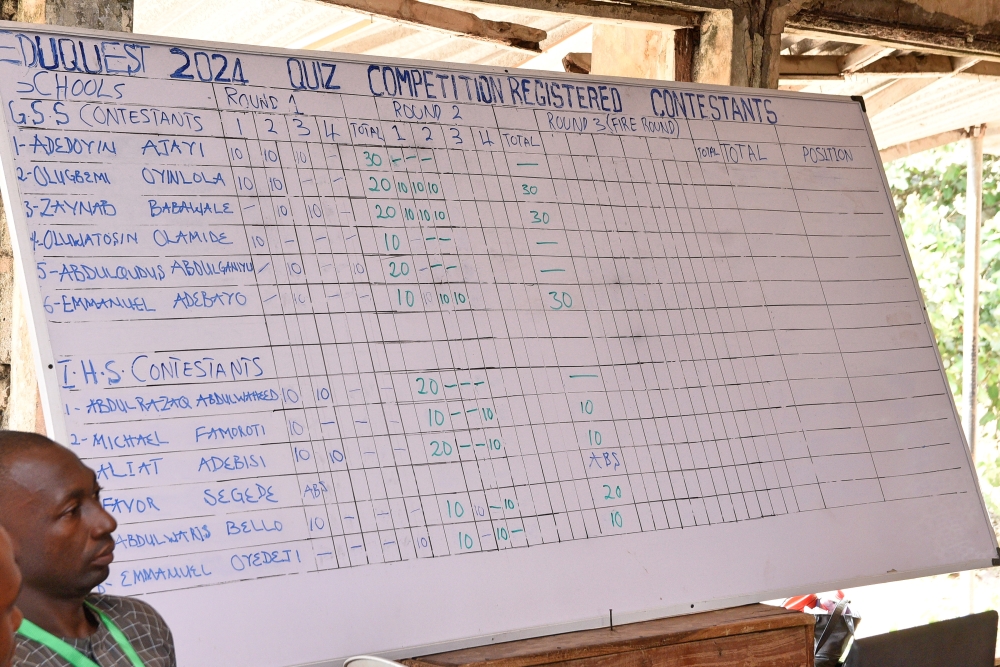 EDUQUEST 2024 QUIZ COMPETITION REGISTERED CONTESTANTS
SCHOOLS ROUND 1 ROUND 2 ROUND 3 (FIRE ROUND)
G.S.S CONTESTANTS 1 2 3 4 TOTAL 1 2 3 4 TOTAL TOTAL TOTAL POSITION
1-ADEDOYIN AJAYI 10 10 10 - 30 - - - -
2-OLUGBEMI OYINLOLA 10 10 - - 20 10 10 10 30
3-ZAYNAB BABAWALE - 10 10 - 20 10 10 10 30
4-OLUWATOSIN OLAMIDE 10 - - - 10 - - -
5-ABDULQUDUS ABDULGANIYU - 10 - 10 20 - - - -
6-EMMANUEL ADEBAYO - 10 - - 10 10 10 10 30
I.H.S. CONTESTANTS
1-ABDULRAZAQ ABDULWAHEED 10 10 - - 20 - - - -
2-MICHAEL FAMOROTI 10 - - - 10 - - 10 10
ALIAT ADEBISI 10 10 - - 20 - - 10 10
FAVOR SEGEDE ABS ABS
ABDULWARIS BELLO 10 - - - 10 10 - 10 20
EMMANUEL OYEDEJI - - - 10 10 - 10 - 10